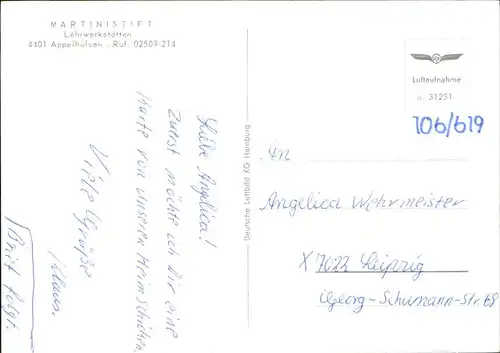 MARTINISTIFT
Lehrwerkstätten
4401 Appelhülsen . Ruf. 02509-214
Liebe Angelica!
Zuerst möchte ich Dir eine
Karte von unseren Heim Schicken.
Viele Grüße
Klaus.
Brief folgt.
Deutsche Luftbild KG Hamburg
Luftaufnahme
31251
106/619
An
Angelica Wehrmeister
X 7022 Leipzig
Georg-Schumann-Str. 68